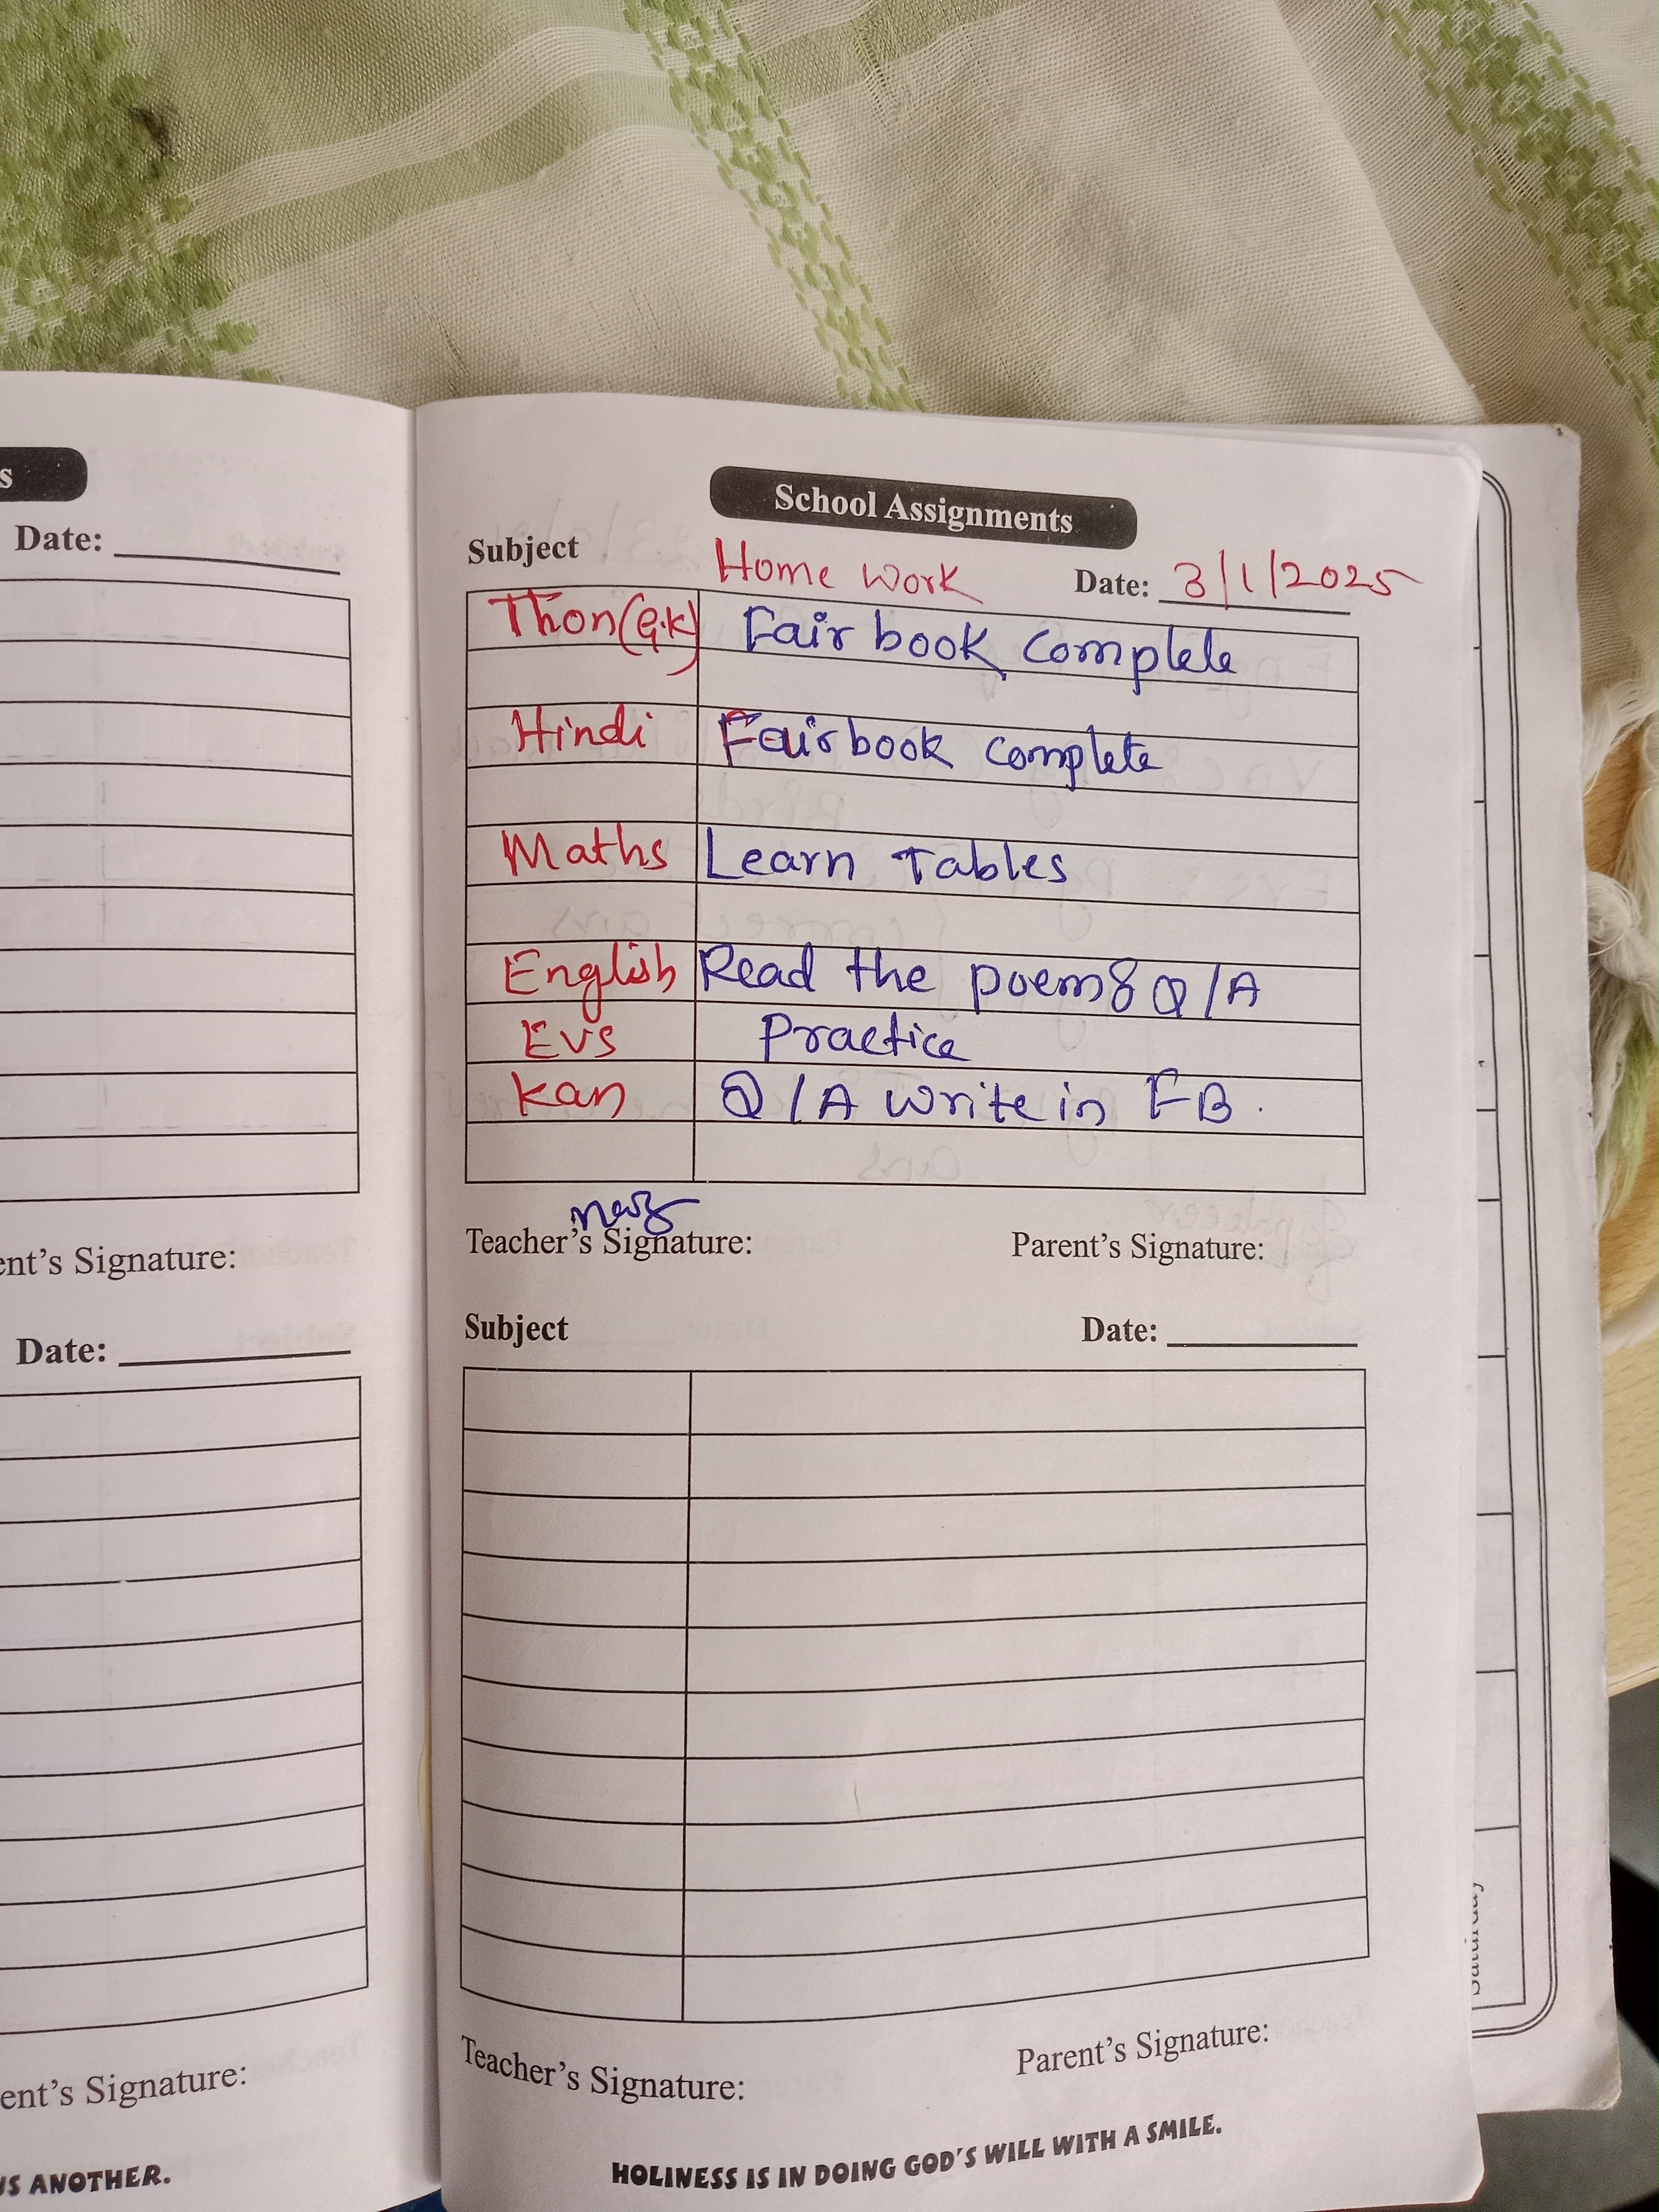 s
Date:
ent's Signature:
Date:
ent's Signature:
US ANOTHER.
School Assignments
Subject Home Work Date: 3/1/2025
Thon(G.K) Fair book complete
Hindi Fair book complete
Maths Learn Tables
English Read the poem & Q/A
Evs Practice
Kan Q/A write in FB.
Teacher's Signature: Parent's Signature:
Subject Date:
Teacher's Signature: Parent's Signature:
HOLINESS IS IN DOING GOD'S WILL WITH A SMILE.
Saturday